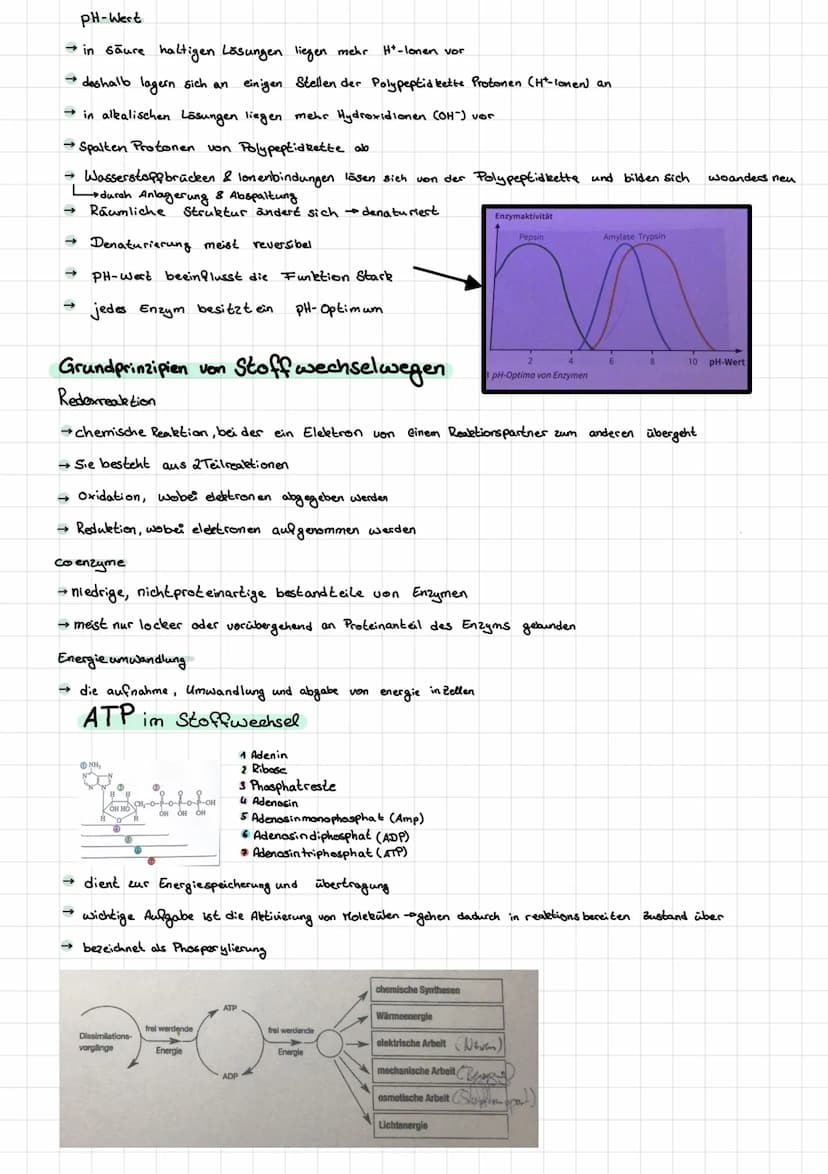 pH-Wert
→ in säure haltigen Lösungen liegen mehr H⁺-Ionen vor
→ deshalb lagern sich an einigen Stellen der Polypeptidkette Protonen (H⁺-Ionen) an
→ in alkalischen Lösungen liegen mehr Hydroxidionen (OH⁻) vor
→ Spalten Protonen von Polypeptidkette ab
→ Wasserstoffbrücken & Ionenbindungen lösen sich von der Polypeptidkette und bilden sich woanders neu
↳ durch Anlagerung & Abspaltung
→ Räumliche Struktur ändert sich → denaturiert
→ Denaturierung meist reversibel
→ pH-Wert beeinflusst die Funktion Stark
→ jedes Enzym besitzt ein pH-Optimum
Enzymaktivität
Pepsin Amylase Trypsin
2 4 6 8 10 pH-Wert
pH-Optima von Enzymen
Grundprinzipien von Stoffwechselwegen
Redoxreaktion
→ chemische Reaktion, bei der ein Elektron von einem Reaktionspartner zum anderen übergeht
→ Sie besteht aus 2 Teilreaktionen
→ Oxidation, wobei elektronen abgegeben werden
→ Reduktion, wobei elektronen aufgenommen werden
coenzyme
→ niedrige, nichtproteinartige bestandteile von Enzymen
→ meist nur locker oder vorübergehend an Proteinanteil des Enzyms gebunden
Energieumwandlung
→ die aufnahme, Umwandlung und abgabe von energie in Zellen
ATP im Stoffwechsel
① NH₂
N N
N N
② ③
H H O O O
OH HO CH₂-O-P-O-P-O-P-OH
H O H OH OH OH
④
⑤
⑥
⑦
1 Adenin
2 Ribose
3 Phosphatreste
4 Adenosin
5 Adenosinmonophosphat (Amp)
6 Adenosindiphosphat (ADP)
7 Adenosintriphosphat (ATP)
→ dient zur Energiespeicherung und übertragung
→ wichtige Aufgabe ist die Aktivierung von Molekülen → gehen dadurch in reaktionsbereiten zustand über
→ bezeichnet als Phosporylierung
Dissimilations-
vorgänge
frei werdende
Energie
ATP
ADP
frei werdende
Energie
chemische Synthesen
Wärmeenergie
elektrische Arbeit (Nerven)
mechanische Arbeit
osmotische Arbeit
Lichtenergie